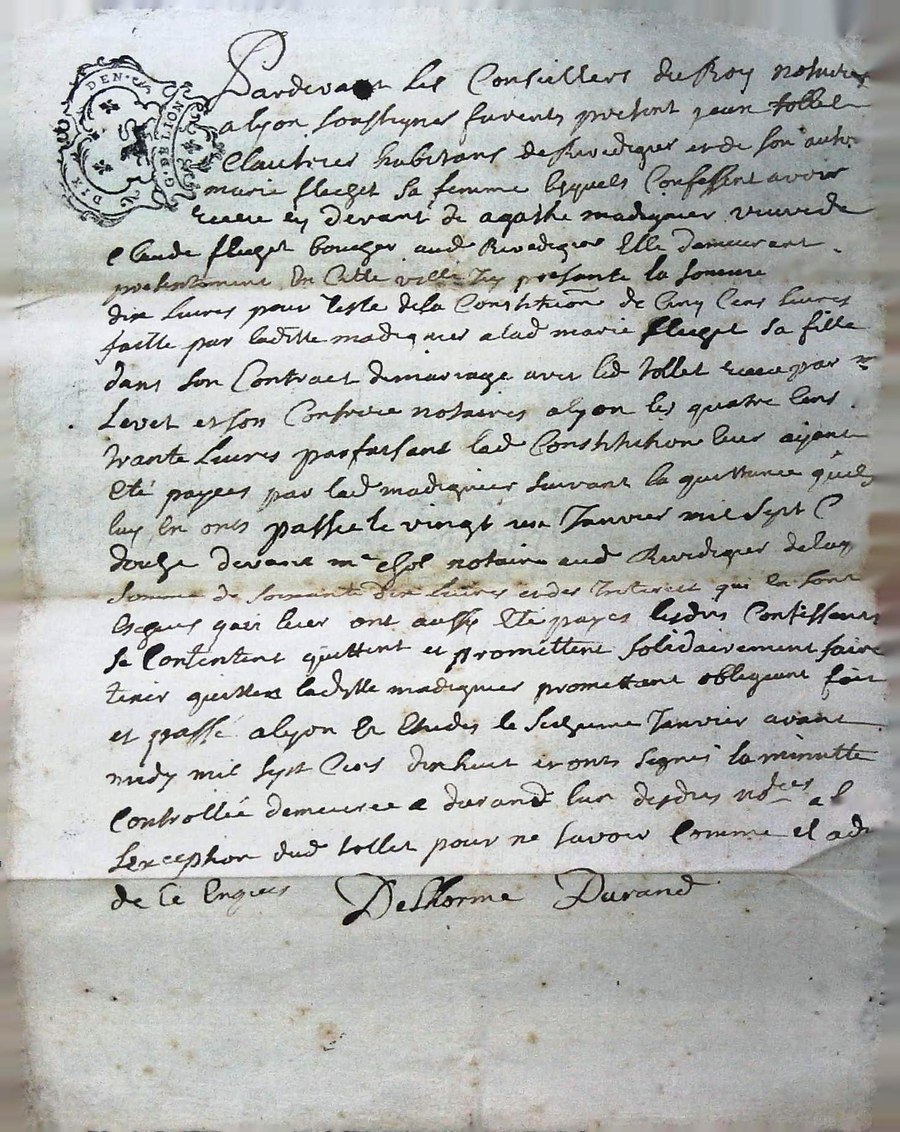 DIX DEN.
G. DE LION
Pardevant les Conseillers du Roy notaires
alyon soussignes furents present jean tollet
habitans de Rivedigier et de son auto
marie fleget sa femme lesquels Confessent avoir
receu cy devant de agathe madignier veuve de
Claude fleget boucher aud Rivedigier Elle demeurant
presentement En Cette ville Icy presante la somme
dix Livres pour reste de la Constitution de Cinq Cens livres
faitte par laditte madignier a lad marie fleget sa fille
dans son Contract de mariage avec led tollet receu par me
Levet et son Confrere notaires alyon les quatre Cens
trante Livres parfaisant lad Constitution leur ayant
Eté payees par lad madignier suivant la quittance quils
luy En onts passee le vingt un Janvier mil Sept C
douze devant me notaire aud Rivedigier de laq
Somme de Soixante dix Livres et des Interest qui En sont
Escheus qui leur ont aussy Eté payes lesdits Confessants
se Contentent quittent et promettent solidairement faire
tenir quitte laditte madignier promettant obligeant fait
et passé alyon Es Etudes le Seizieme Janvier avant
midy mil Sept Cens dix huit et onts signé la minutte
Controllée demeuree a durand lun desdits nores a l
Lexception dud tollet pour ne savoir Comme il a d
de Ce Enquis Delhorme Durand